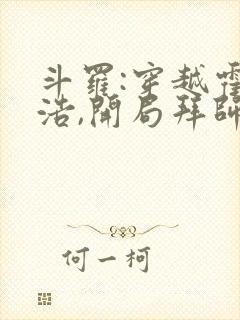 斗罗:穿越霍
浩,開局拜師
何一柯